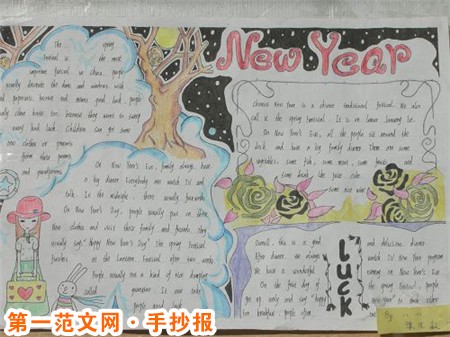 New Year
The spring
festival is the most
important festival in China. people
usually decorate the doors and windows with
red papercuts. because red means good luck. people
usually clean house too. because they want to sweep
away bad luck. Children can get some
new clothes or presents
from their parents
and grandparents.
On New Year's Eve, family always have
a big dinner. Everybody are watch TV and
talk. In the midnight, there usually fireworks.
On New Year's Day, people usually put on their
New clothes and visit their family and friends. they
usually say: "Happy New Year's Day." The Spring Festival
finishes at the Lantern Festival after two weeks.
People usually eat a kind of rice dumpling
called
Chinese New Year is a Chinese traditional festival. We also
call it the spring festival. It is on
On New Year's Eve, all the people sit around the
desk and have a big family dinner. There are some
vegetables, some fish, some meat, some
some drink like juice coke.
some rice wine
Overall, this is a good
After dinner, we always
We have a wonderful
On the first day of
go up early and say "happy
for breakfast.
and delicious dinner.
watch TV New Year program
evening on New Year's Eve.
the spring festival, people
New Year" to
people
LUCK
By
第一范文网·手抄报